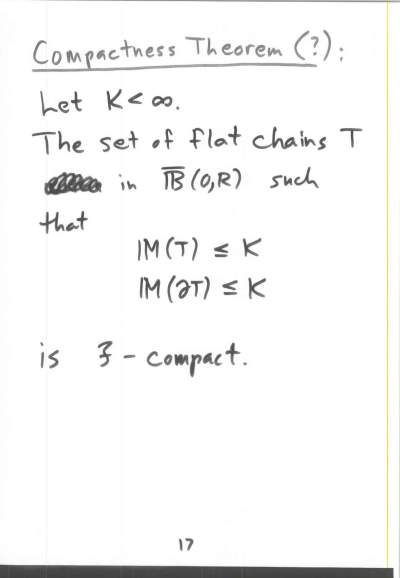 Compactness Theorem (?):
Let K < ∞.
The set of flat chains T
in B̅(0,R) such
that
𝕄(T) ≤ K
𝕄(∂T) ≤ K
is ℱ-compact.
17